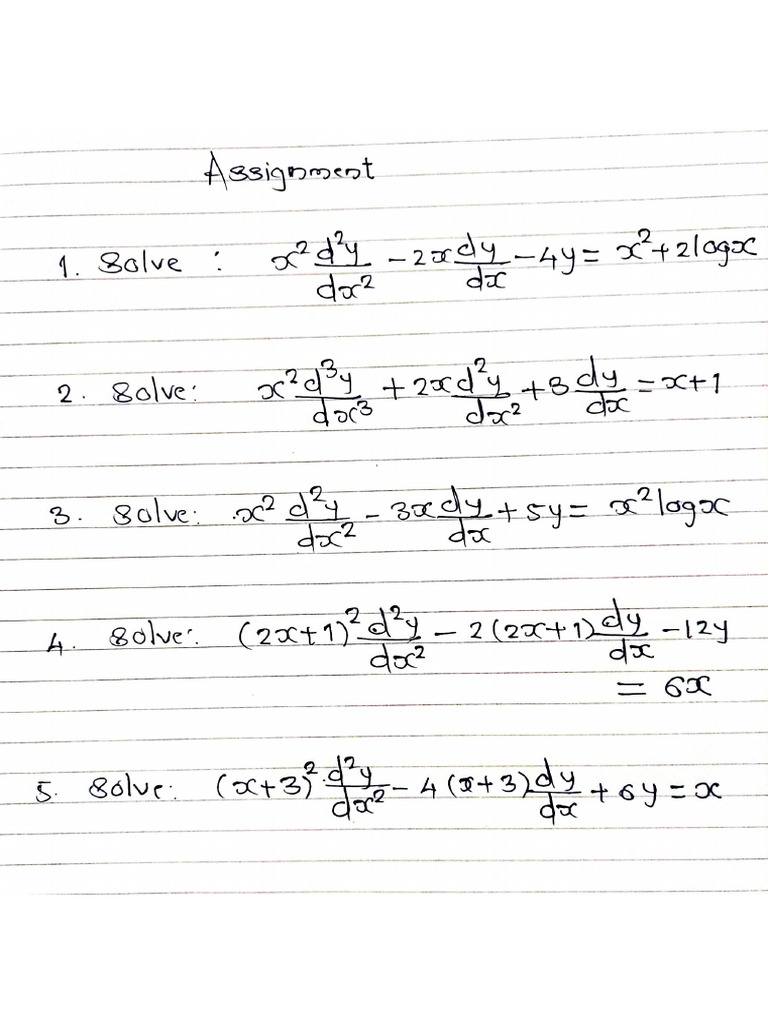 Assignment
1. Solve : x² d²y/dx² - 2x dy/dx - 4y = x² + 2logx
2. Solve: x² d³y/dx³ + 2x d²y/dx² + 8 dy/dx = x+1
3. Solve: x² d²y/dx² - 3x dy/dx + 5y = x² logx
4. Solve: (2x+1)² d²y/dx² - 2(2x+1) dy/dx - 12y
= 6x
5. Solve: (x+3)² d²y/dx² - 4(x+3) dy/dx + 6y = x